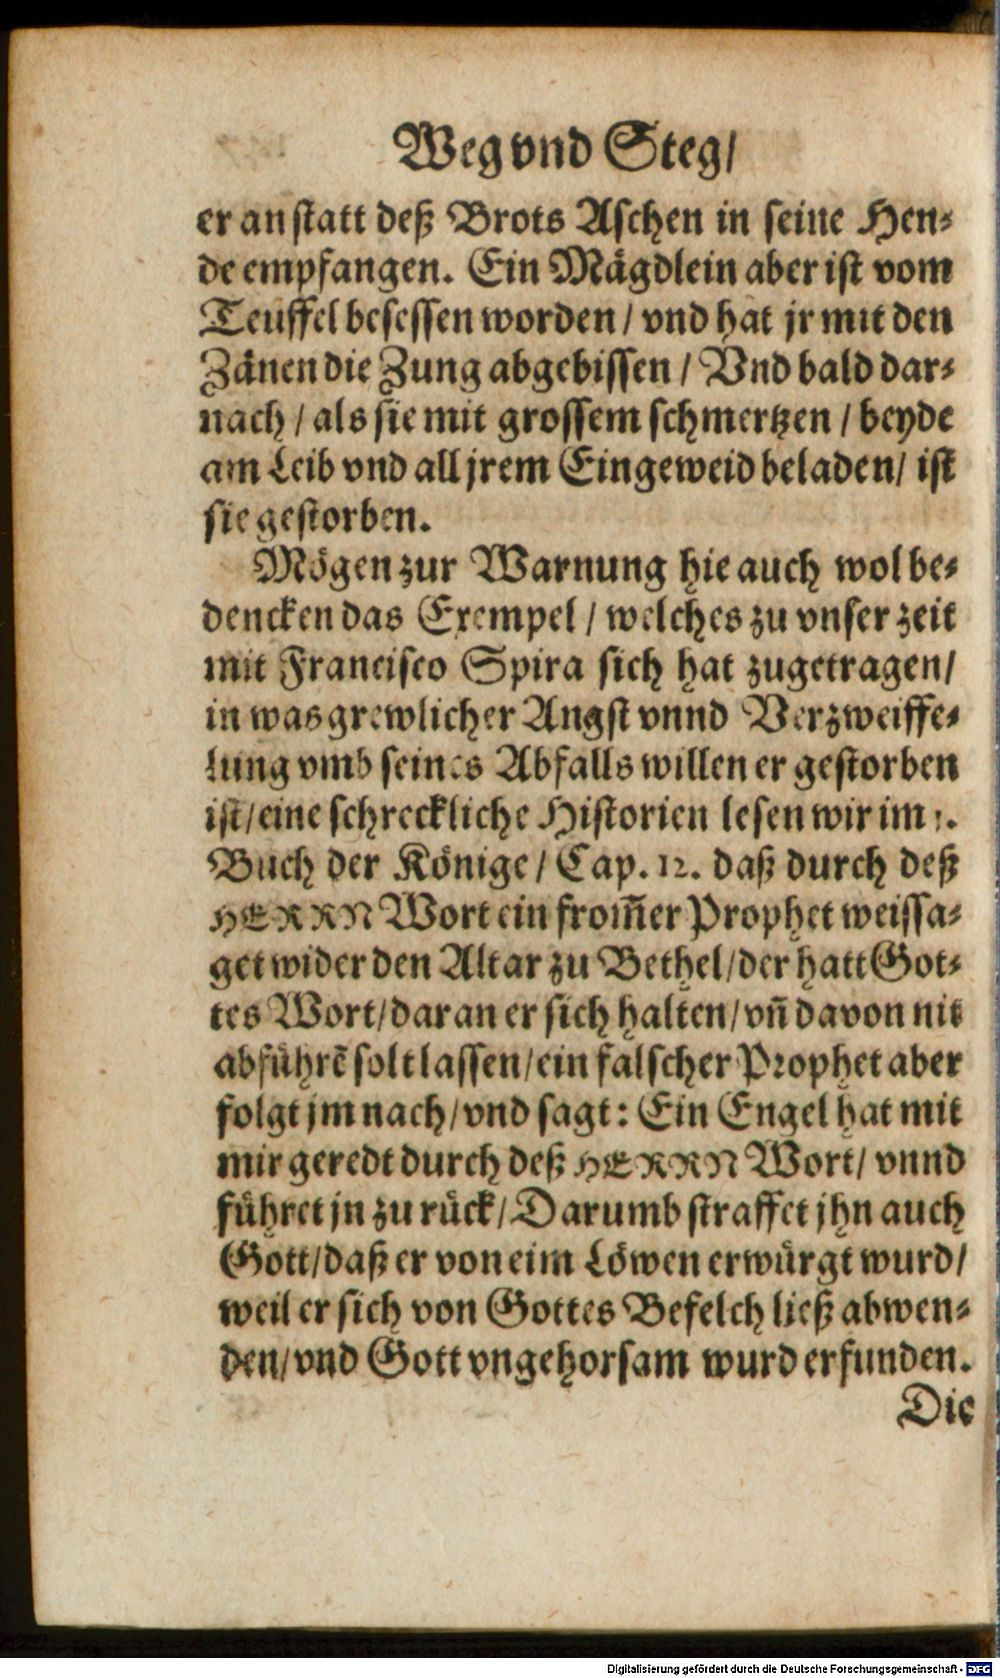 Weg vnd Steg/
er an statt deß Brots Aschen in seine Hen-
de empfangen. Ein Mägdlein aber ist vom
Teuffel besessen worden / vnd hat jr mit den
Zänen die Zung abgebissen / Vnd bald dar-
nach / als sie mit grossem schmertzen / beyde
am Leib vnd all jrem Eingeweid beladen/ ist
sie gestorben.
Mögen zur Warnung hie auch wol be-
dencken das Exempel / welches zu vnser zeit
mit Francisco Spira sich hat zugetragen/
in was grewlicher Angst vnnd Verzweiffe-
lung vmb seines Abfalls willen er gestorben
ist/ eine schreckliche Historien lesen wir im
Buch der Könige/ Cap. 12. daß durch deß
HERRN Wort ein from̃er Prophet weissa-
get wider den Altar zu Bethel/ der hatt Got-
tes Wort/ daran er sich halten/ vñ davon nit
abführẽ solt lassen/ ein falscher Prophet aber
folgt jm nach/ vnd sagt: Ein Engel hat mit
mir geredt durch deß HERRN Wort/ vnnd
führet jn zu rück/ Darumb straffet jhn auch
Gott/ daß er von eim Löwen erwürgt wurd/
weil er sich von Gottes Befelch ließ abwen-
den/ vnd Gott vngehorsam wurd erfunden.
Die
Digitalisierung gefördert durch die Deutsche Forschungsgemeinschaft - DFG